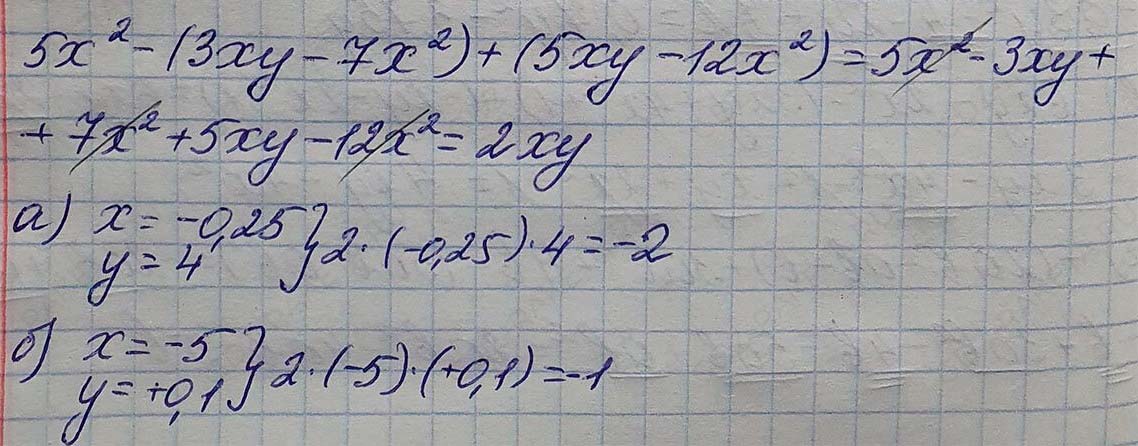 5x² - (3xy - 7x²) + (5xy - 12x²) = 5x² - 3xy +
+ 7x² + 5xy - 12x² = 2xy
а) x = -0,25
y = 4 } 2 · (-0,25) · 4 = -2
б) x = -5
y = +0,1 } 2 · (-5) · (+0,1) = -1